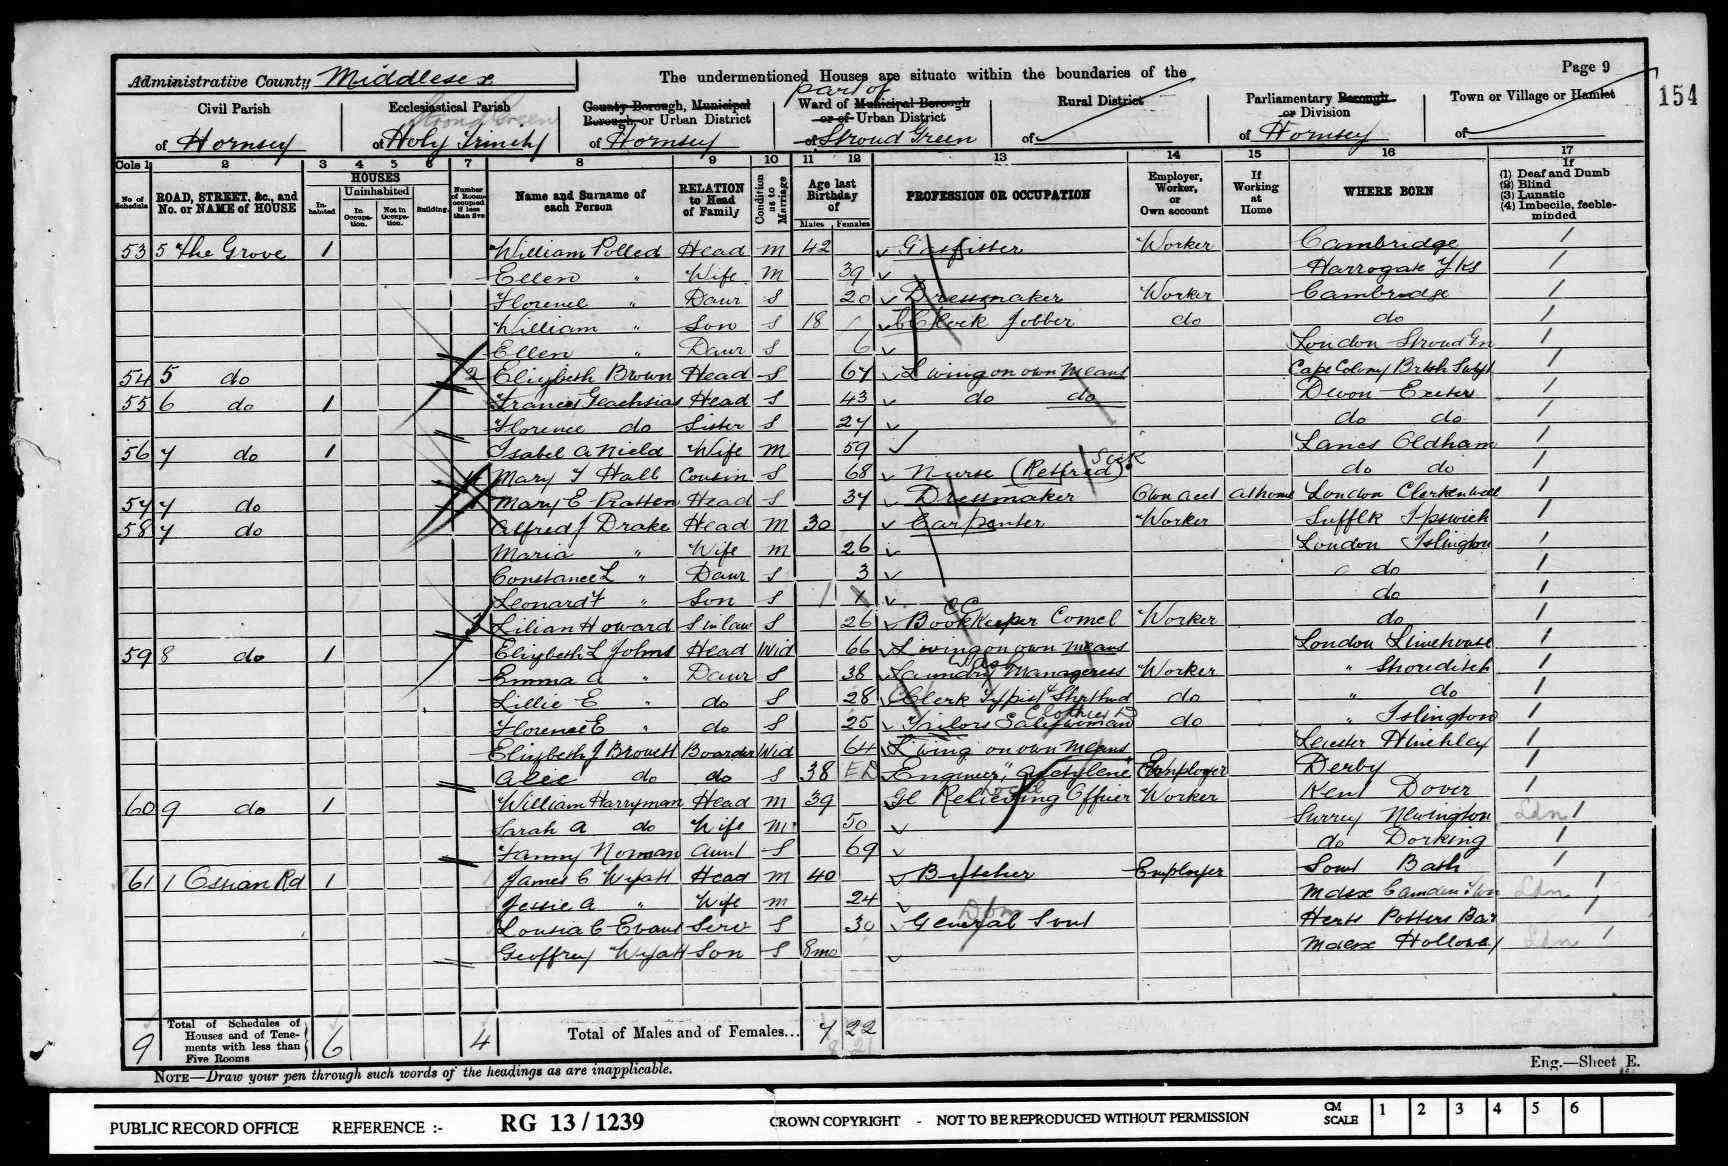 Administrative County Middlesex
The undermentioned Houses are situate within the boundaries of the
Page 9
154
Civil Parish
of Hornsey
Ecclesiastical Parish
Stroud Green
of Holy Trinity
County Borough, Municipal
Borough, or Urban District
of Hornsey
part of
Ward of Municipal Borough
or of Urban District
of Stroud Green
Rural District
of
Parliamentary Borough
or Division
of Hornsey
Town or Village or Hamlet
of
Cols 1 2 3 4 5 6 7 8 9 10 11 12 13 14 15 16 17
No. of Schedule
ROAD, STREET, &c., and No. or NAME of HOUSE
HOUSES
Inhabited
Uninhabited
In Occupation.
Not in Occupation.
Building.
Number of Rooms occupied if less than five
Name and Surname of each Person
RELATION to Head of Family
Condition as to Marriage
Age last Birthday of
Males Females
PROFESSION OR OCCUPATION
Employer, Worker, or Own account
If Working at Home
WHERE BORN
If
(1) Deaf and Dumb
(2) Blind
(3) Lunatic
(4) Imbecile, feeble-minded
53 5 The Grove 1 William Polled Head M 42 Gasfitter Worker Cambridge
Ellen " Wife M 39 Harrogate Yks
Florence " Daur S 20 Dressmaker Worker Cambridge
William " Son S 18 Clock Jobber do do
Ellen " Daur S 6 London Stroud Gn
54 5 do 2 Elizabeth Brown Head S 67 Living on own means Cape Colony Brtsh Subjt
55 6 do 1 Frances Head S 43 do do Devon Exeter
Florence do Sister S 27 do do
56 7 do 1 Isabel A Nield Wife M 59 Lancs Oldham
4 Mary Y Hall Cousin S 68 Nurse (Retired) Sick do do
57 7 do Mary E Pratten Head S 37 Dressmaker Own acct at home London Clerkenwell
58 7 do Alfred J Drake Head M 30 Carpenter Worker Suffk Ipswich
Maria " Wife M 26 London Islington
Constance L " Daur S 3 do
Leonard F " Son S 1 do
3 Lilian Howard S in law S 26 Bookkeeper Comcl Worker do
59 8 do 1 Elizabeth L Johns Head Wid 66 Living on own means London Limehouse
Emma A " Daur S 38 Laundry Manageress Wash Worker " Shoreditch
Lillie E " do S 28 Clerk Typist Shrthnd do " do
Florence E " do S 25 Tailors Saleswoman Clothier D do " Islington
Elizbeth J Brovett Boarder Wid 64 Living on own means Leicester Hinchley
Alice do do S 38 Engineer, "Acetylene" Employer Derby
60 9 do 1 William Harryman Head M 39 Gl Relieving Officer Local Worker Kent Dover
Sarah A do Wife M 50 Surrey Newington Ldn
Fanny Norman Aunt S 69 do Dorking
61 1 Ossian Rd 1 James C Wyatt Head M 40 Butcher Employer Somt Bath
Jessie A " Wife M 24 Mdsx Camden Twn Ldn
Louisa C Evans Serv S 30 General Servt Dom Herts Potters Bar
Geoffrey Wyatt Son S 8mo Mdsx Holloway Ldn
9 Total of Schedules of Houses and of Tenements with less than Five Rooms 6 4 Total of Males and of Females... 7 22
8 21
NOTE—Draw your pen through such words of the headings as are inapplicable.
Eng.—Sheet E.
PUBLIC RECORD OFFICE REFERENCE :- RG 13 / 1239 CROWN COPYRIGHT - NOT TO BE REPRODUCED WITHOUT PERMISSION CM SCALE 1 2 3 4 5 6